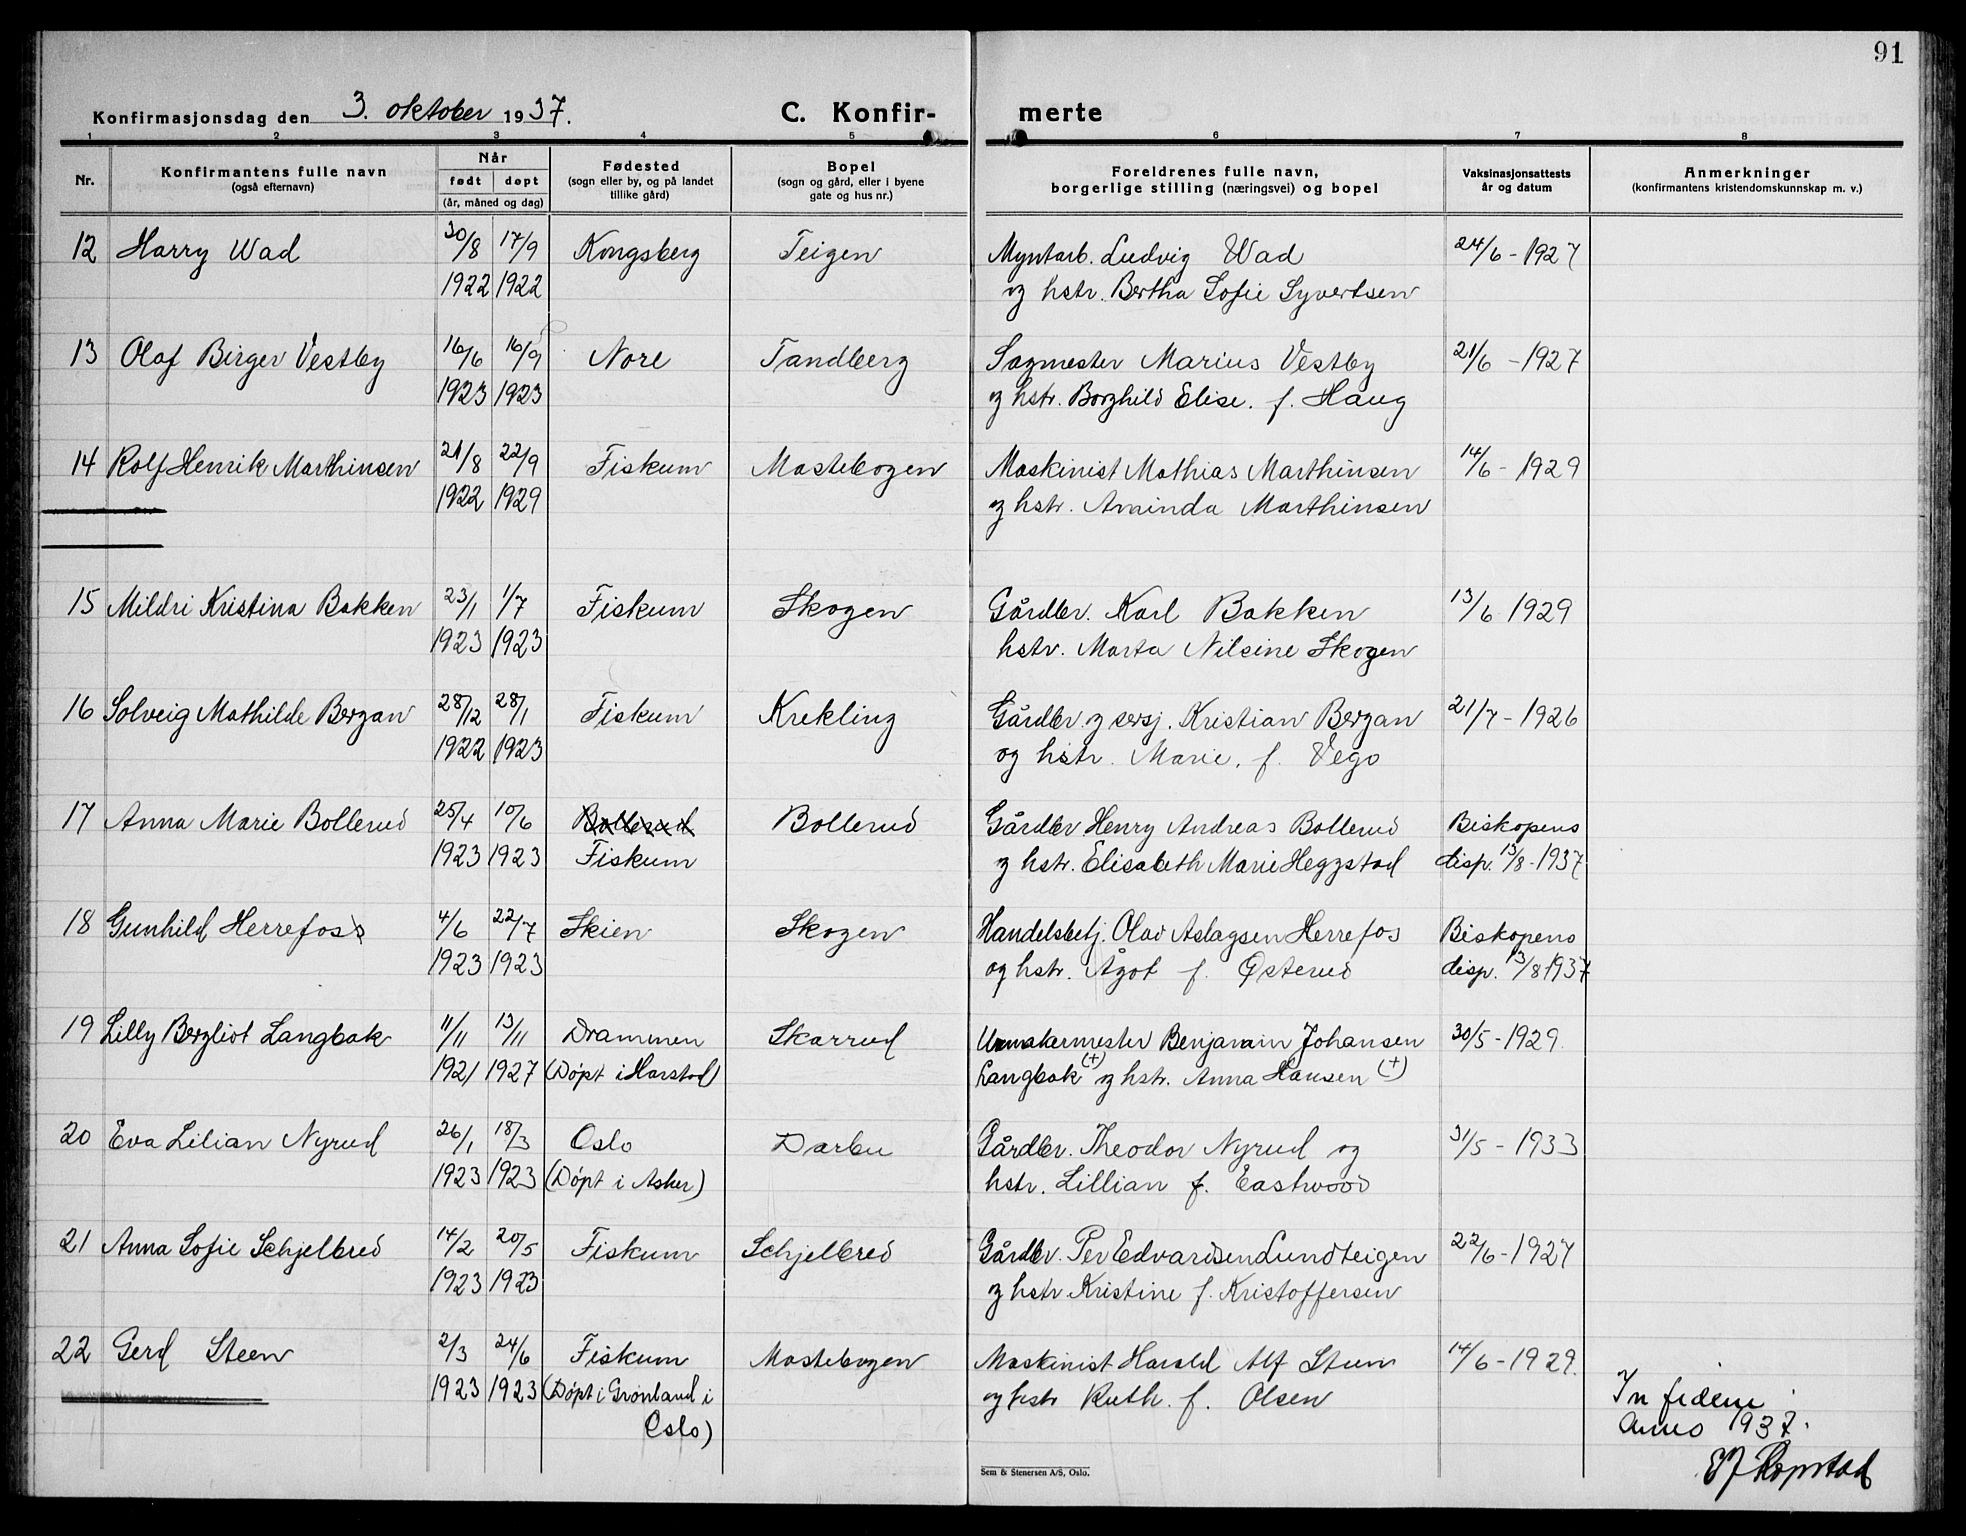 91
Konfirmasjonsdag den 3. oktober 1937.
C. Konfir-
merte
1 2 3 4 5 6 7 8
Nr.
Konfirmantens fulle navn
(også efternavn)
Når
født døpt
(år, måned og dag)
Fødested
(sogn eller by, og på landet
tillike gård)
Bopel
(sogn og gård, eller i byene
gate og hus nr.)
Foreldrenes fulle navn,
borgerlige stilling (næringsvei) og bopel
Vaksinasjonsattests
år og datum
Anmerkninger
(konfirmantens kristendomskunnskap m. v.)
12 Harry Wad 30/8 17/9 Kongsberg Teigen Myntarb. Ludvig Wad 24/6 - 1927
1922 1922 og hstr. Bertha Sofie Syvertsen
13 Olaf Birger Vestby 16/6 16/9 Nore Tandberg Sagmester Marius Vestby 21/6 - 1927
1923 1923 og hstr. Borghild Elise. f. Haug
14 Rolf Henrik Marthinsen 21/8 22/9 Fiskum Mastebogen Maskinist Mathias Marthinsen 14/6 - 1929
1922 1929 og hstr. Marthinsen
15 Mildri Kristina Bakken 23/1 1/7 Fiskum Skogen Gårdbr. Karl Bakken 13/6 1929
1923 1923 hstr. Marta Nilsine Skogen
16 Solveig Mathilde Bergan 28/12 28/1 Fiskum Krekling Gårdbr. og sersj. Kristian Bergan 21/7 - 1926
1922 1923 og hstr. Marie. f. Vego
17 Anna Marie Bollerud 25/4 10/6 Bollerud Bollerud Gårdbr. Henry Andreas Bollerud Biskopens
1923 1923 Fiskum og hstr. Elisabeth Marie Heggstad disp. 13/8 - 1937
18 Gunhild Herrefoss 4/6 22/7 Skien Skogen Handelsbetj. Olav Aslagsen Herrefos Biskopens
1923 1923 og hstr. Ågot f. Østerud disp. 13/8 1937
19 Lilly Bergliot Langbak 11/11 13/11 Drammen Skarrud Urmakermester Benjamin Johansen 30/5 - 1929.
1921 1927 (Døpt i Harstad) Langbak (+) og hstr. Anna Hansen (+)
20 Eva Lilian Nyrud 26/1 18/3 Oslo Darbu Gårdbr. Theodor Nyrud og 31/5 - 1933
1923 1923 (Døpt i Asker) hstr. Lillian f. Eastwood
21 Anna Sofie Schjelbred 14/2 20/5 Fiskum Schjelbred Gårdbr. Per Edvardsen Lundteigen 22/6 - 1927
1923 1923 og hstr. Kristine f. Kristoffersen
22 Gerd Steen 2/3 24/6 Fiskum Mastebogen Maskinist Harald Alf Steen 14/6 - 1929.
1923 1923 (Døpt i Grønland i og hstr Ruth. f. Olsen
Oslo)
In fidem
Anno 1937.
Sem & Stenersen A/S, Oslo.